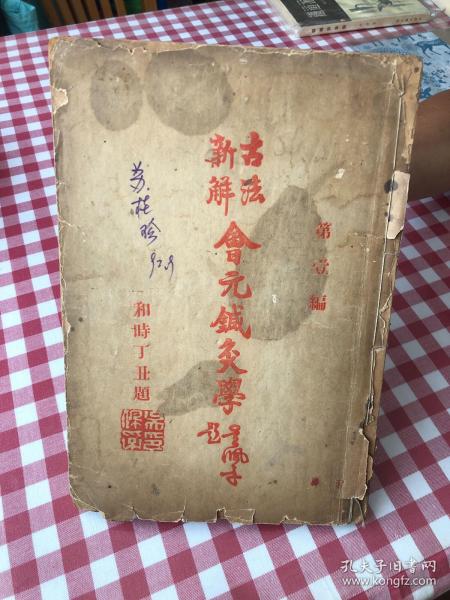 第壹編
古法
新解
會元鍼灸學
題
一和時丁丑題
92.9
孔夫子旧书网
www.kongfz.com